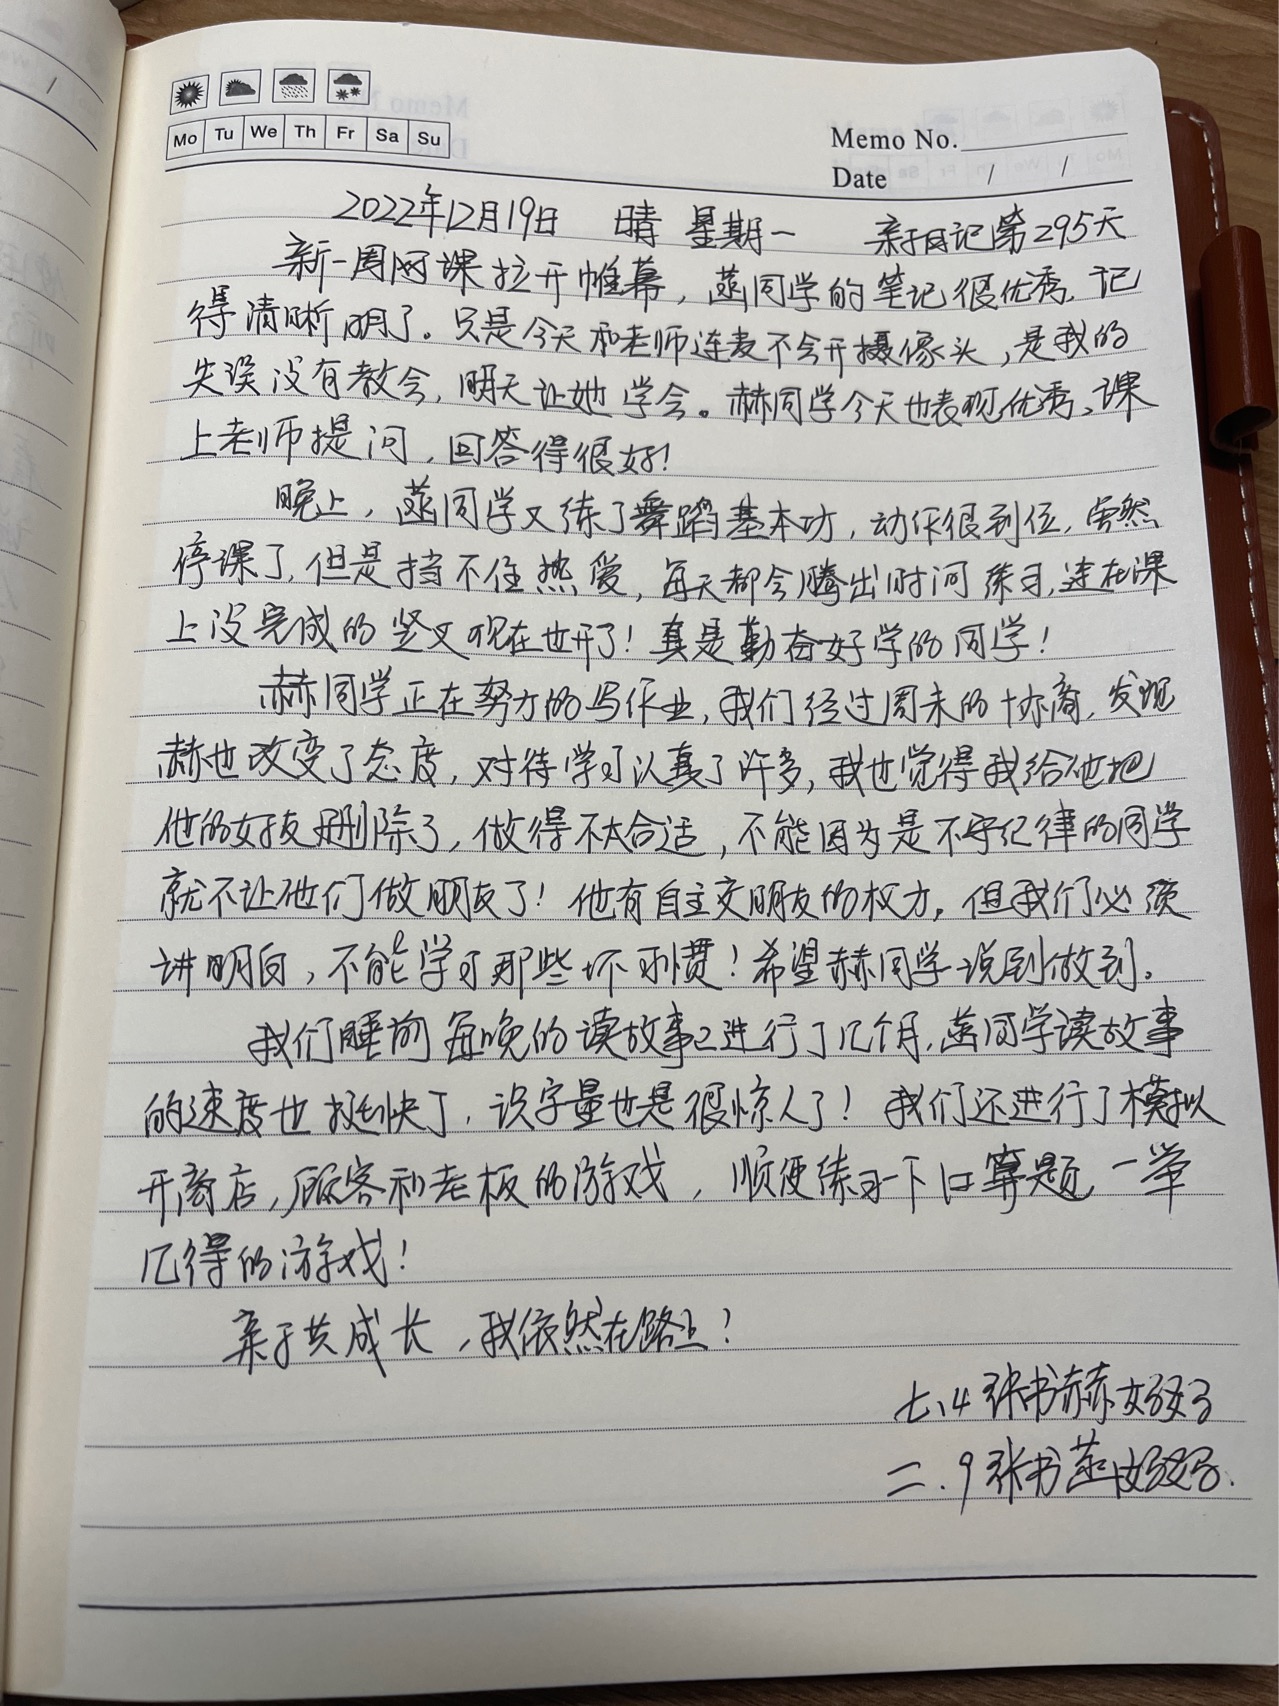 Mo Tu We Th Fr Sa Su
Memo No.
Date / /
2022年12月19日 晴 星期一 亲子日记第295天
新一周网课拉开帷幕，菡同学的笔记很优秀，记
得清晰明了。只是今天和老师连麦不会开摄像头，是我的
失误没有教会，明天让她学会。赫同学今天也表现优秀，课
上老师提问，回答得很好！
晚上，菡同学又练了舞蹈基本功，动作很到位，虽然
停课了，但是挡不住热爱，每天都会腾出时间练习，连在课
上没完成的竖叉现在也开了！真是勤奋好学的同学！
赫同学正在努力的写作业，我们经过周末的协商，发现
赫也改变了态度，对待学习认真了许多，我也觉得我给他把
他的好友删除了，做得不太合适，不能因为是不守纪律的同学
就不让他们做朋友了！他有自主交朋友的权力，但我们必须
讲明白，不能学习那些坏习惯！希望赫同学说到做到。
我们睡前每晚的读故事已进行了几个月，菡同学读故事
的速度也挺快了，识字量也是很惊人了！我们还进行了模拟
开商店，顾客和老板的游戏，顺便练习一下口算题，一举
几得的游戏！
亲子共成长，我依然在路上！
七、4 张书赫妈妈
二、9 张书菡妈妈